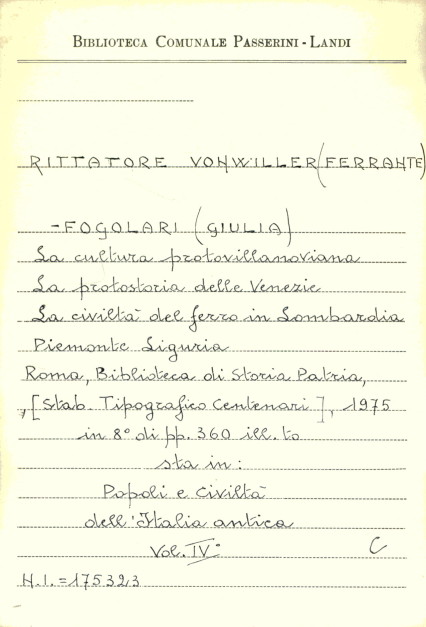 BIBLIOTECA COMUNALE PASSERINI - LANDI
RITTATORE VONWILLER (FERRANTE)
- FOGOLARI (GIULIA)
La cultura protovillanoviana
La protostoria delle Venezie
La civiltà del ferro in Lombardia
Piemonte Liguria
Roma, Biblioteca di Storia Patria,
, [Stab. Tipografico Centenari], 1975
in 8° di pp. 360 ill. to
sta in:
Popoli e Civiltà
dell'Italia antica
Vol. IV°
C
H.I. = 175323